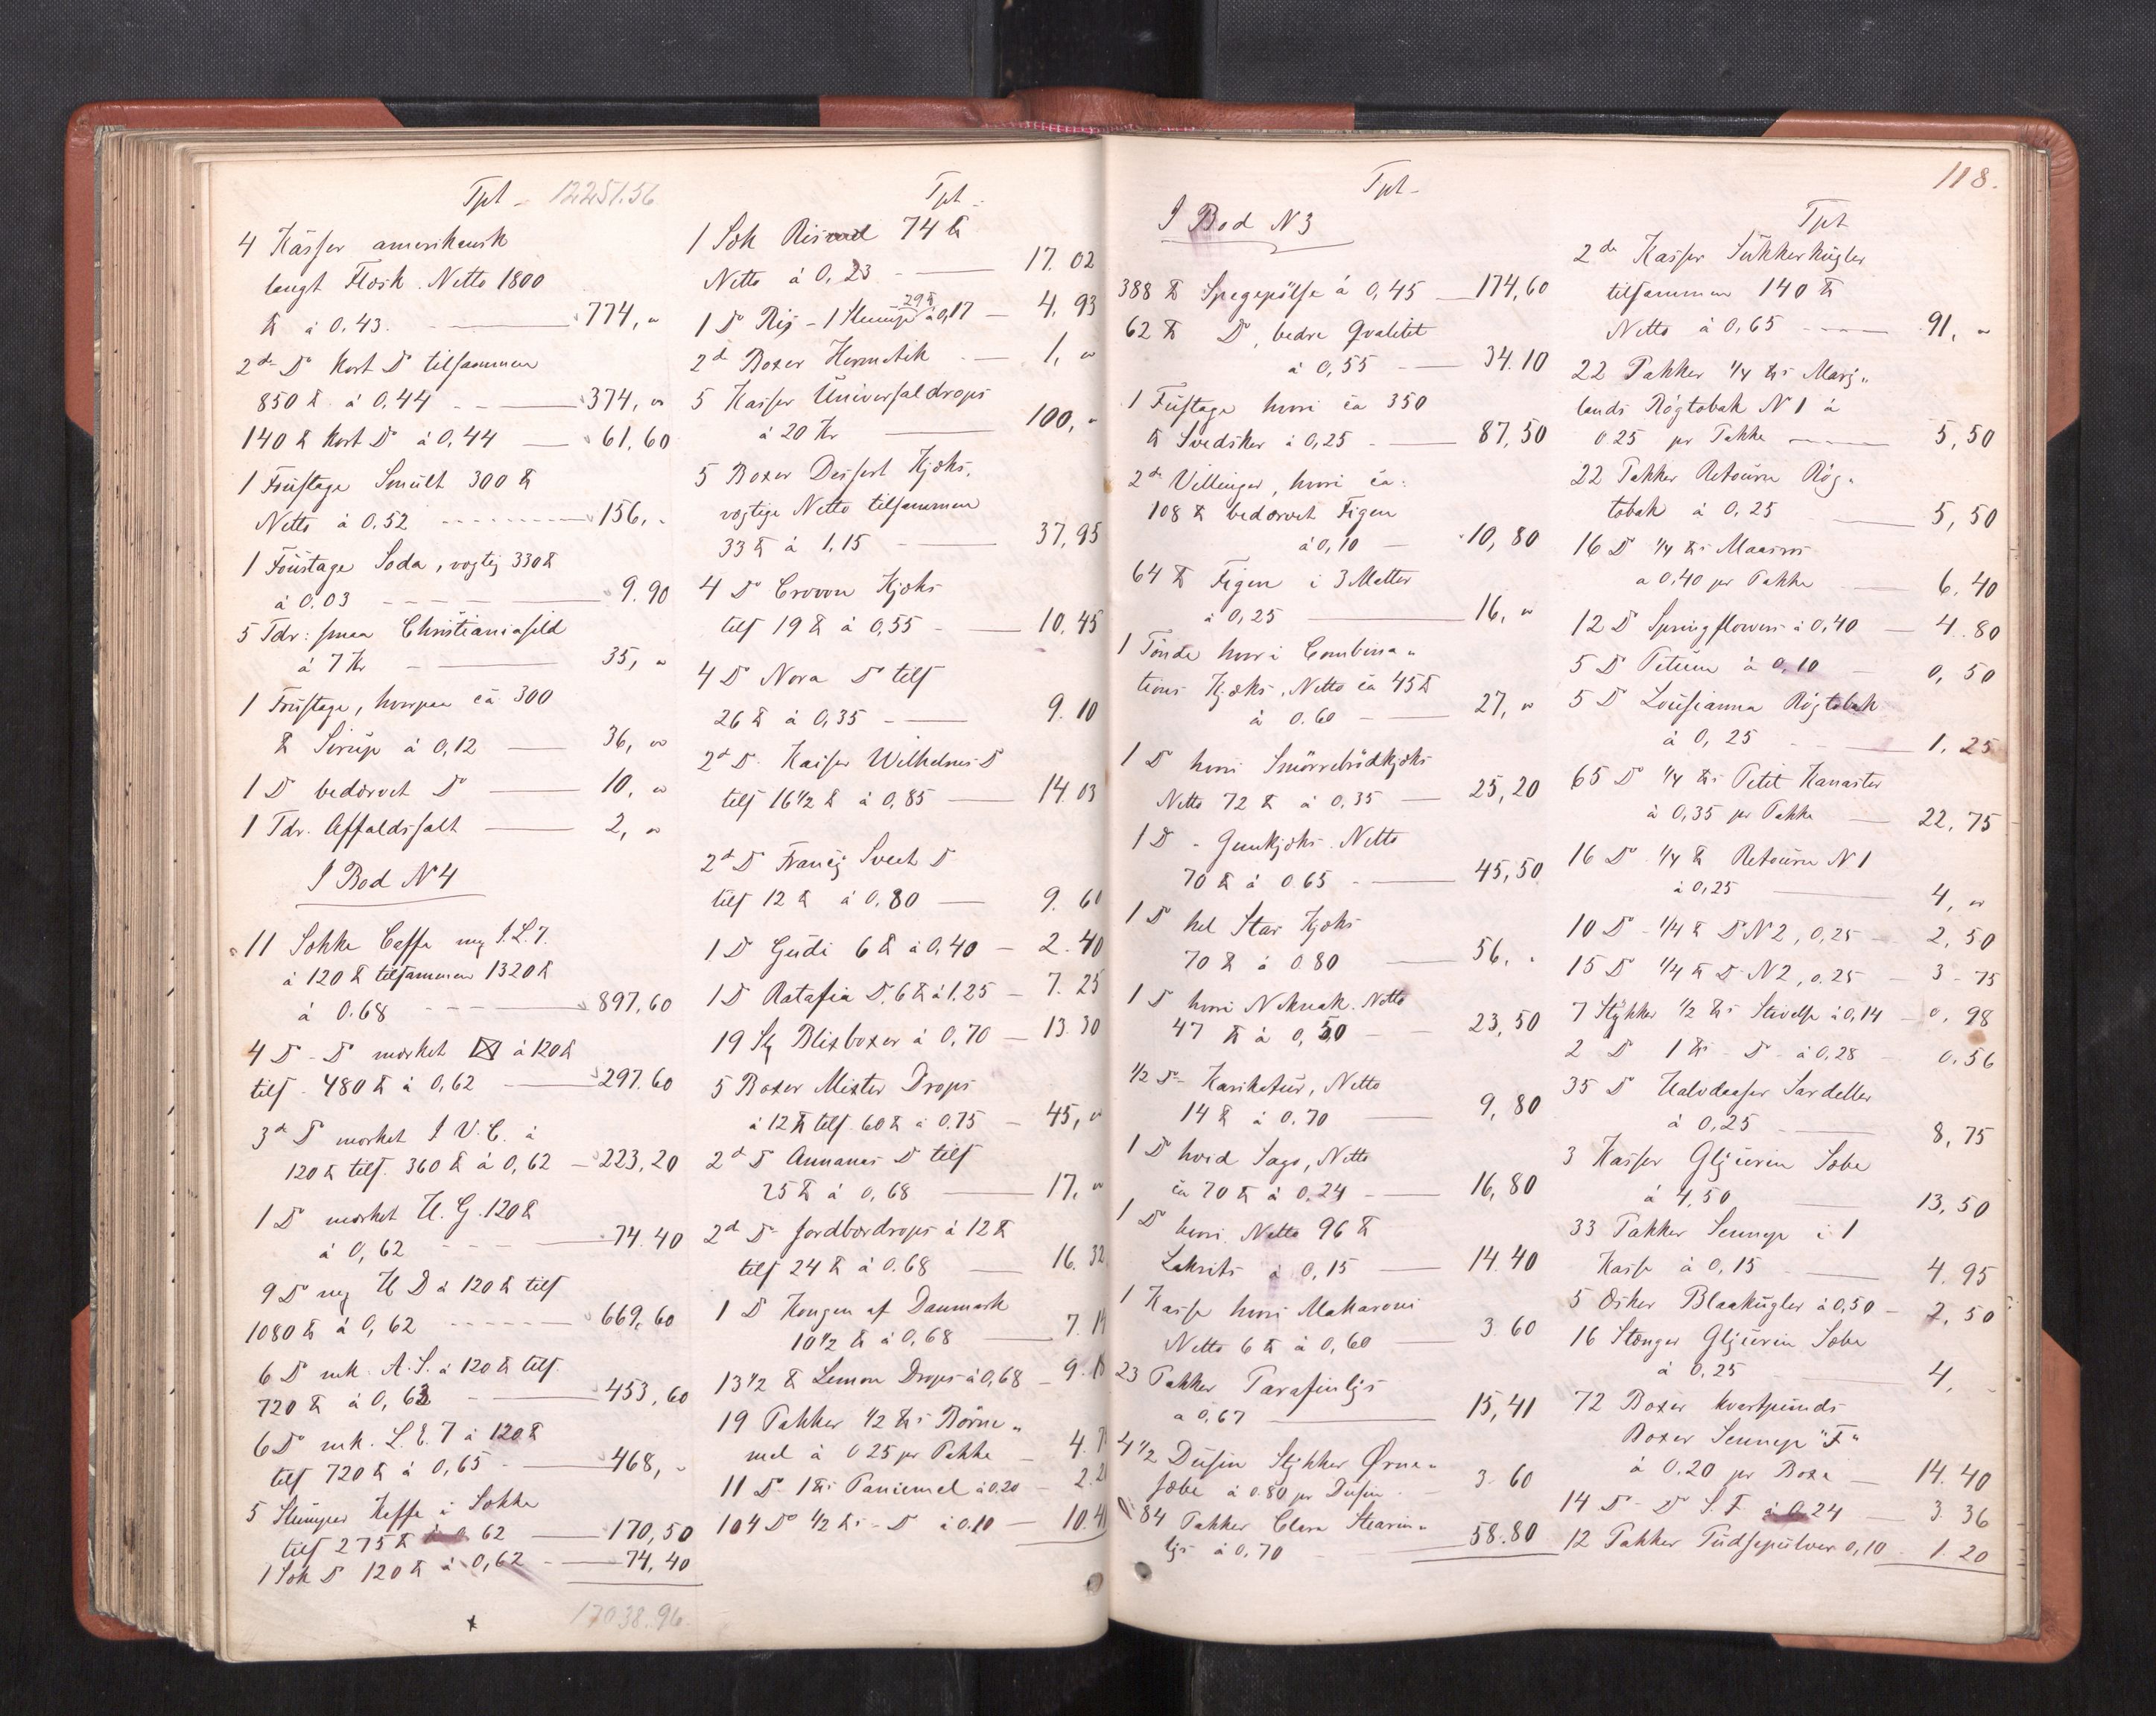 Tpt - 12251.56
4 Kasser amerikansk
langt Flæsk. Netto 1800
℔ à 0.43. - 774, "
2de Do Kort Do tilsammen
850 ℔ à 0,44 - 374, "
140 ℔ Kort Do à 0,44 - 61,60
1 Foustage Smult 300 ℔
Netto à 0.52 - 156, "
1 Foustage Soda, vægtig 330 ℔
à 0.03 - 9.90
5 Tdr: smaa Christianiasild
à 7 Kr - 35, "
1 Foustage, hvorpaa ca 300
℔ Sirup à 0,12 - 36, "
1 Do bedærvet Do - 10, "
1 Tdr. Affaldssalt - 2, "
I Bod No 4
11 Sække Caffe mrk I.L.7.
à 120 ℔ tilsammen 1320 ℔
à 0.68 - 897,60
4 Do - Do mærket à 120 ℔
tils. 480 ℔ à 0,62 - 297.60
3de Do mærket I V. C. à
120 ℔ tils. 360 ℔ à 0,62 - 223,20
1 Do mærket H. G. 120 ℔
à 0,62 - 74.40
9 Do mrk H D à 120 ℔ tils
1080 ℔ à 0,62 - 669,60
6 Do mk. A.S. à 120 ℔ tils.
720 ℔ à 0,63 - 453,60
6 Do mk. L.E.7 à 120 ℔
tils 720 ℔ à 0,65 - 468, "
5 Slumper Kaffe i Sække
tils 275 ℔ à 0,62 - 170,50
1 Sæk Do 120 ℔ à 0,62 - 74,40
17038.96
Tpt -
1 Sæk Rismel 74 ℔
Netto à 0,23 - 17.02
29 ℔
1 Do Ris - 1 Slump à 0,17 - 4,93
2de Boxer Hermetik - 1, "
5 Kasser Universaldrops
à 20 Kr - 100, "
5 Boxer Dessert Kjæks,
vægtige Netto tilsammen
33 ℔ à 1,15 - 37,95
4 Do Crown Kjæks
tils 19 ℔ à 0,55 - 10,45
4 Do Nora Do tils
26 ℔ à 0,35 - 9.10
2de Do Kaiser Wilhelms Do
tils 16 1/2 ℔ à 0,85 - 14.03
2de Do Francy Svect Do
tils 12 ℔ à 0.80 - 9.60
1 Do Gudi 6 ℔ à 0,40 - 2.40
1 Do Ratafia Do 6 ℔ à 1.25 - 7.25
19 Stk Blixboxer à 0,70 - 13.30
5 Boxer Mixter Drops
à 12 ℔ tils. 60 ℔ à 0.75 - 45, "
2de Do Annanas Do tils
25 ℔ à 0,68 - 17, "
2de Do Jordbærdrops à 12 ℔
tils 24 ℔ à 0.68 - 16.32
1 Do Kongen af Danmark
10 1/2 ℔ à 0,68 - 7.1
13 1/2 ℔ Lemon Drops à 0,68 - 9.18
19 Pakker 1/2 ℔s Börne "
mel à 0 25 pr Pakke - 4.7
11 Do 1 ℔s Paniermel à 0.20 - 2.2
104 Do 1/2 ℔s - Do à 0.10 - 10.4
118.
Tpt -
I Bod No 3
388 ℔ Spegepölse à 0,45 - 174,60
62 ℔ Do, bedre Qvalitet
à 0,55 - 34.10
1 Fustage hvori ca 350
℔ Svedsker à 0,25 - 87,50
2de Villinger, hvori ca:
108 ℔ bedærvet Figen
à 0,10 - 10,80
64 ℔ Figen i 3 Matter
à 0,25 - 16, "
1 Tönde hvori Combina "
tions Kjæks, Netto ca 45 ℔
à 0.60 - 27, "
1 Do hvori Smörrebrödkjæks
Netto 72 ℔ à 0,35 - 25,20
1 Do - Gemkjæks. Netto
70 ℔ à 0.65 - 45,50
1 Do hel Star Kjæks
70 ℔ à 0.80 - 56, "
1 Do hvori N Knak. Netto
47 ℔ à 0,50 - 23,50
1/2 Do - Karikatur, Netto
14 ℔ à 0.70 - 9,80
1 Do hvid Sago, Netto
ca 70 ℔ à 0.24 - 16,80
1 Do hvori Netto 96 ℔
Lakrits à 0,15 - 14.40
1 Kasse hvori Makaroni
Netto 6 ℔ à 0,60 - 3.60
23 Pakker Parafinlys
a 0,67 - 15,41
4 1/2 Dusin Stykker Ørne "
sæbe à 0.80 pr Dusin - 3.60
84 Pakker Clara Stearin "
lys à 0,70 - 58.80
Tpt
2de Kasser Sukkerkugler
tilsammen 140 ℔
Netto à 0,65 - 91, "
22 Pakker 1/4 ℔s Mary "
lands Rögtobak No 1 à
0 25 pr Pakke - 5,50
22 Pakker Retour Rög "
tobak à 0,25 - 5,50
16 Do 1/4 ℔s
a 0,40 pr Pakke - 6.40
12 Do Springflowers à 0,40 - 4.80
5 Do Petum à 0,10 - 0,50
5 Do Lousianna Rögtobak
à 0,25 - 1.25
65 Do 1/4 ℔s Petit Kanaster
à 0,35 pr Pakke - 22,75
16 Do 1/4 ℔ Retour No 1
à 0,25 - 4, "
10 Do - 1/4 ℔ Do No 2, 0,25 - 2,50
15 Do 1/4 ℔ Do No 2, 0.25 - 3-75
7 Stykker 1/2 ℔s Stivelse à 0,14 - 0,98
2 Do 1 ℔s - Do - à 0.28 - 0.56
35 D Halvdaaser Sardeller
à 0,25 - 8,75
3 Kasser Glycerin Sæbe
à 4,50 - 13,50
33 Pakker Sennep i 1
Kasse à 0,15 - 4.95
5 Æsker Blaakugler à 0,50 - 2,50
16 Stænger Glycerin Sæbe
à 0,25 - 4, -
72 Boxer kvartpunds
Boxer Sennep "F"
à 0.20 pr Boxe - 14.40
14 Do - Do S.F. à 0.24 - 3.36
12 Pakker Pudsepulver 0,10 - 1.20